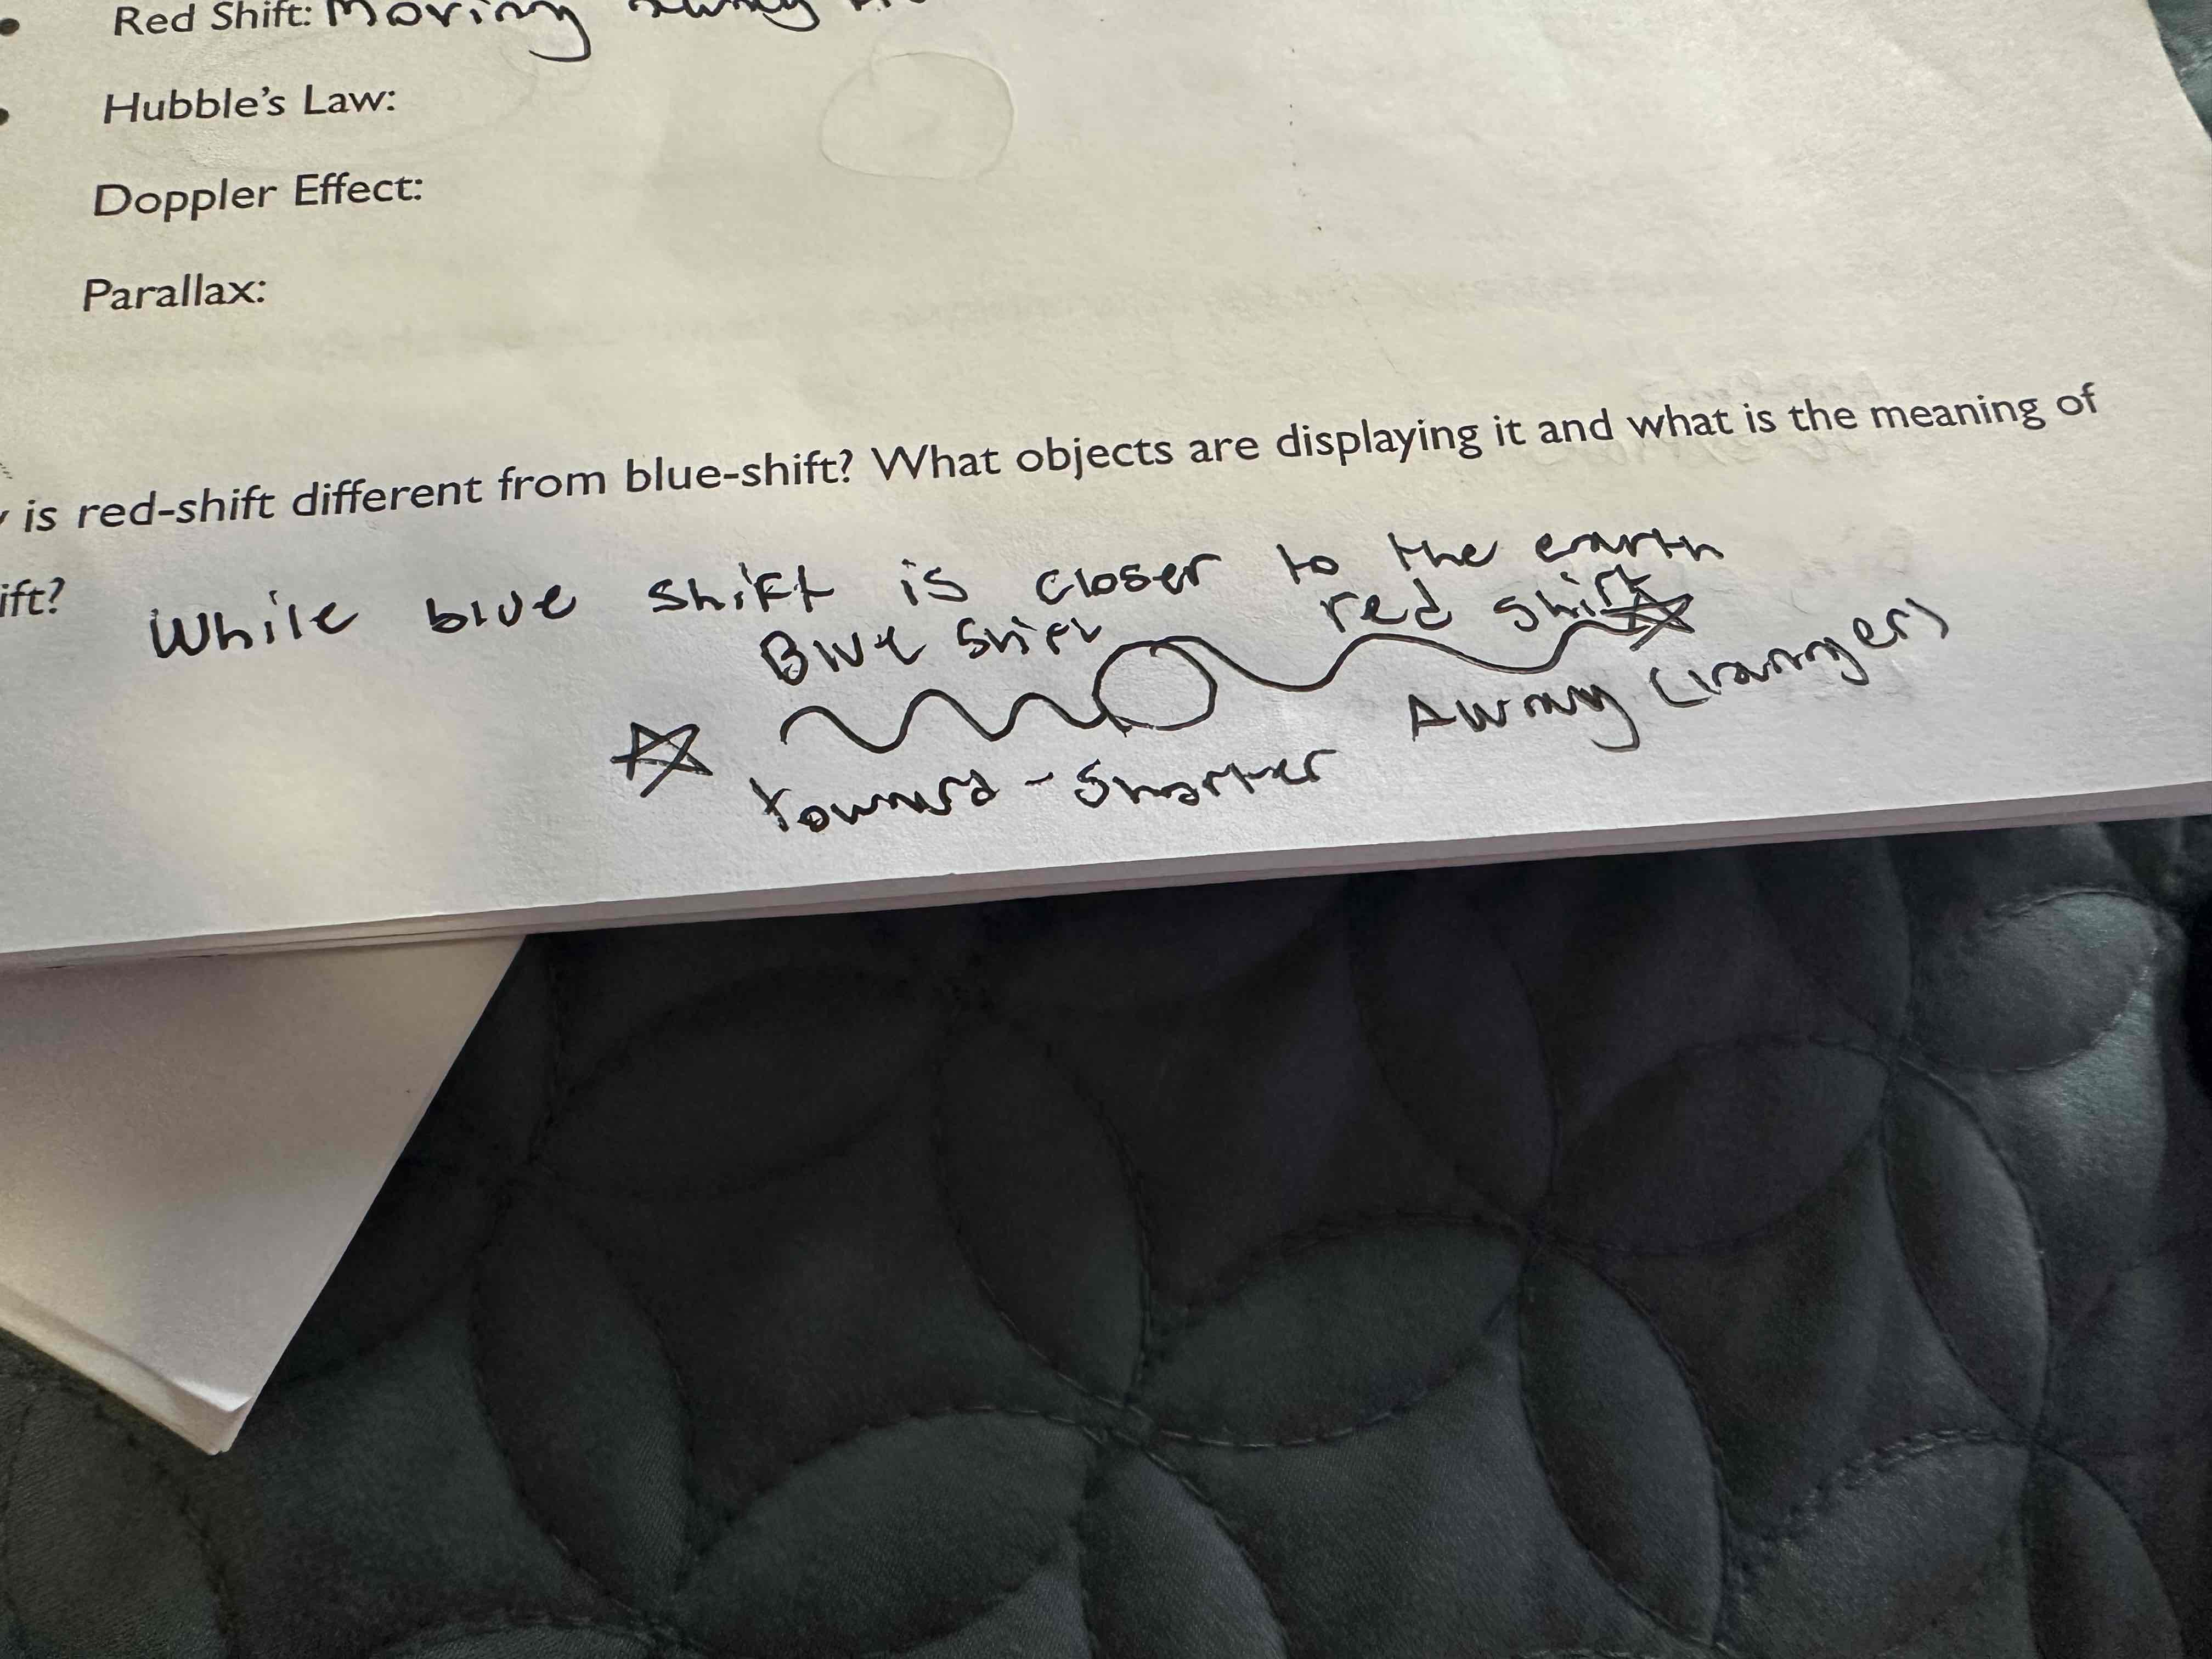 Red Shift: Moving away
Hubble's Law:
Doppler Effect:
Parallax:
is red-shift different from blue-shift? What objects are displaying it and what is the meaning of
ift? While blue shift is closer to the earth
Blue Shift red shift
Away (longer)
toward - shorter